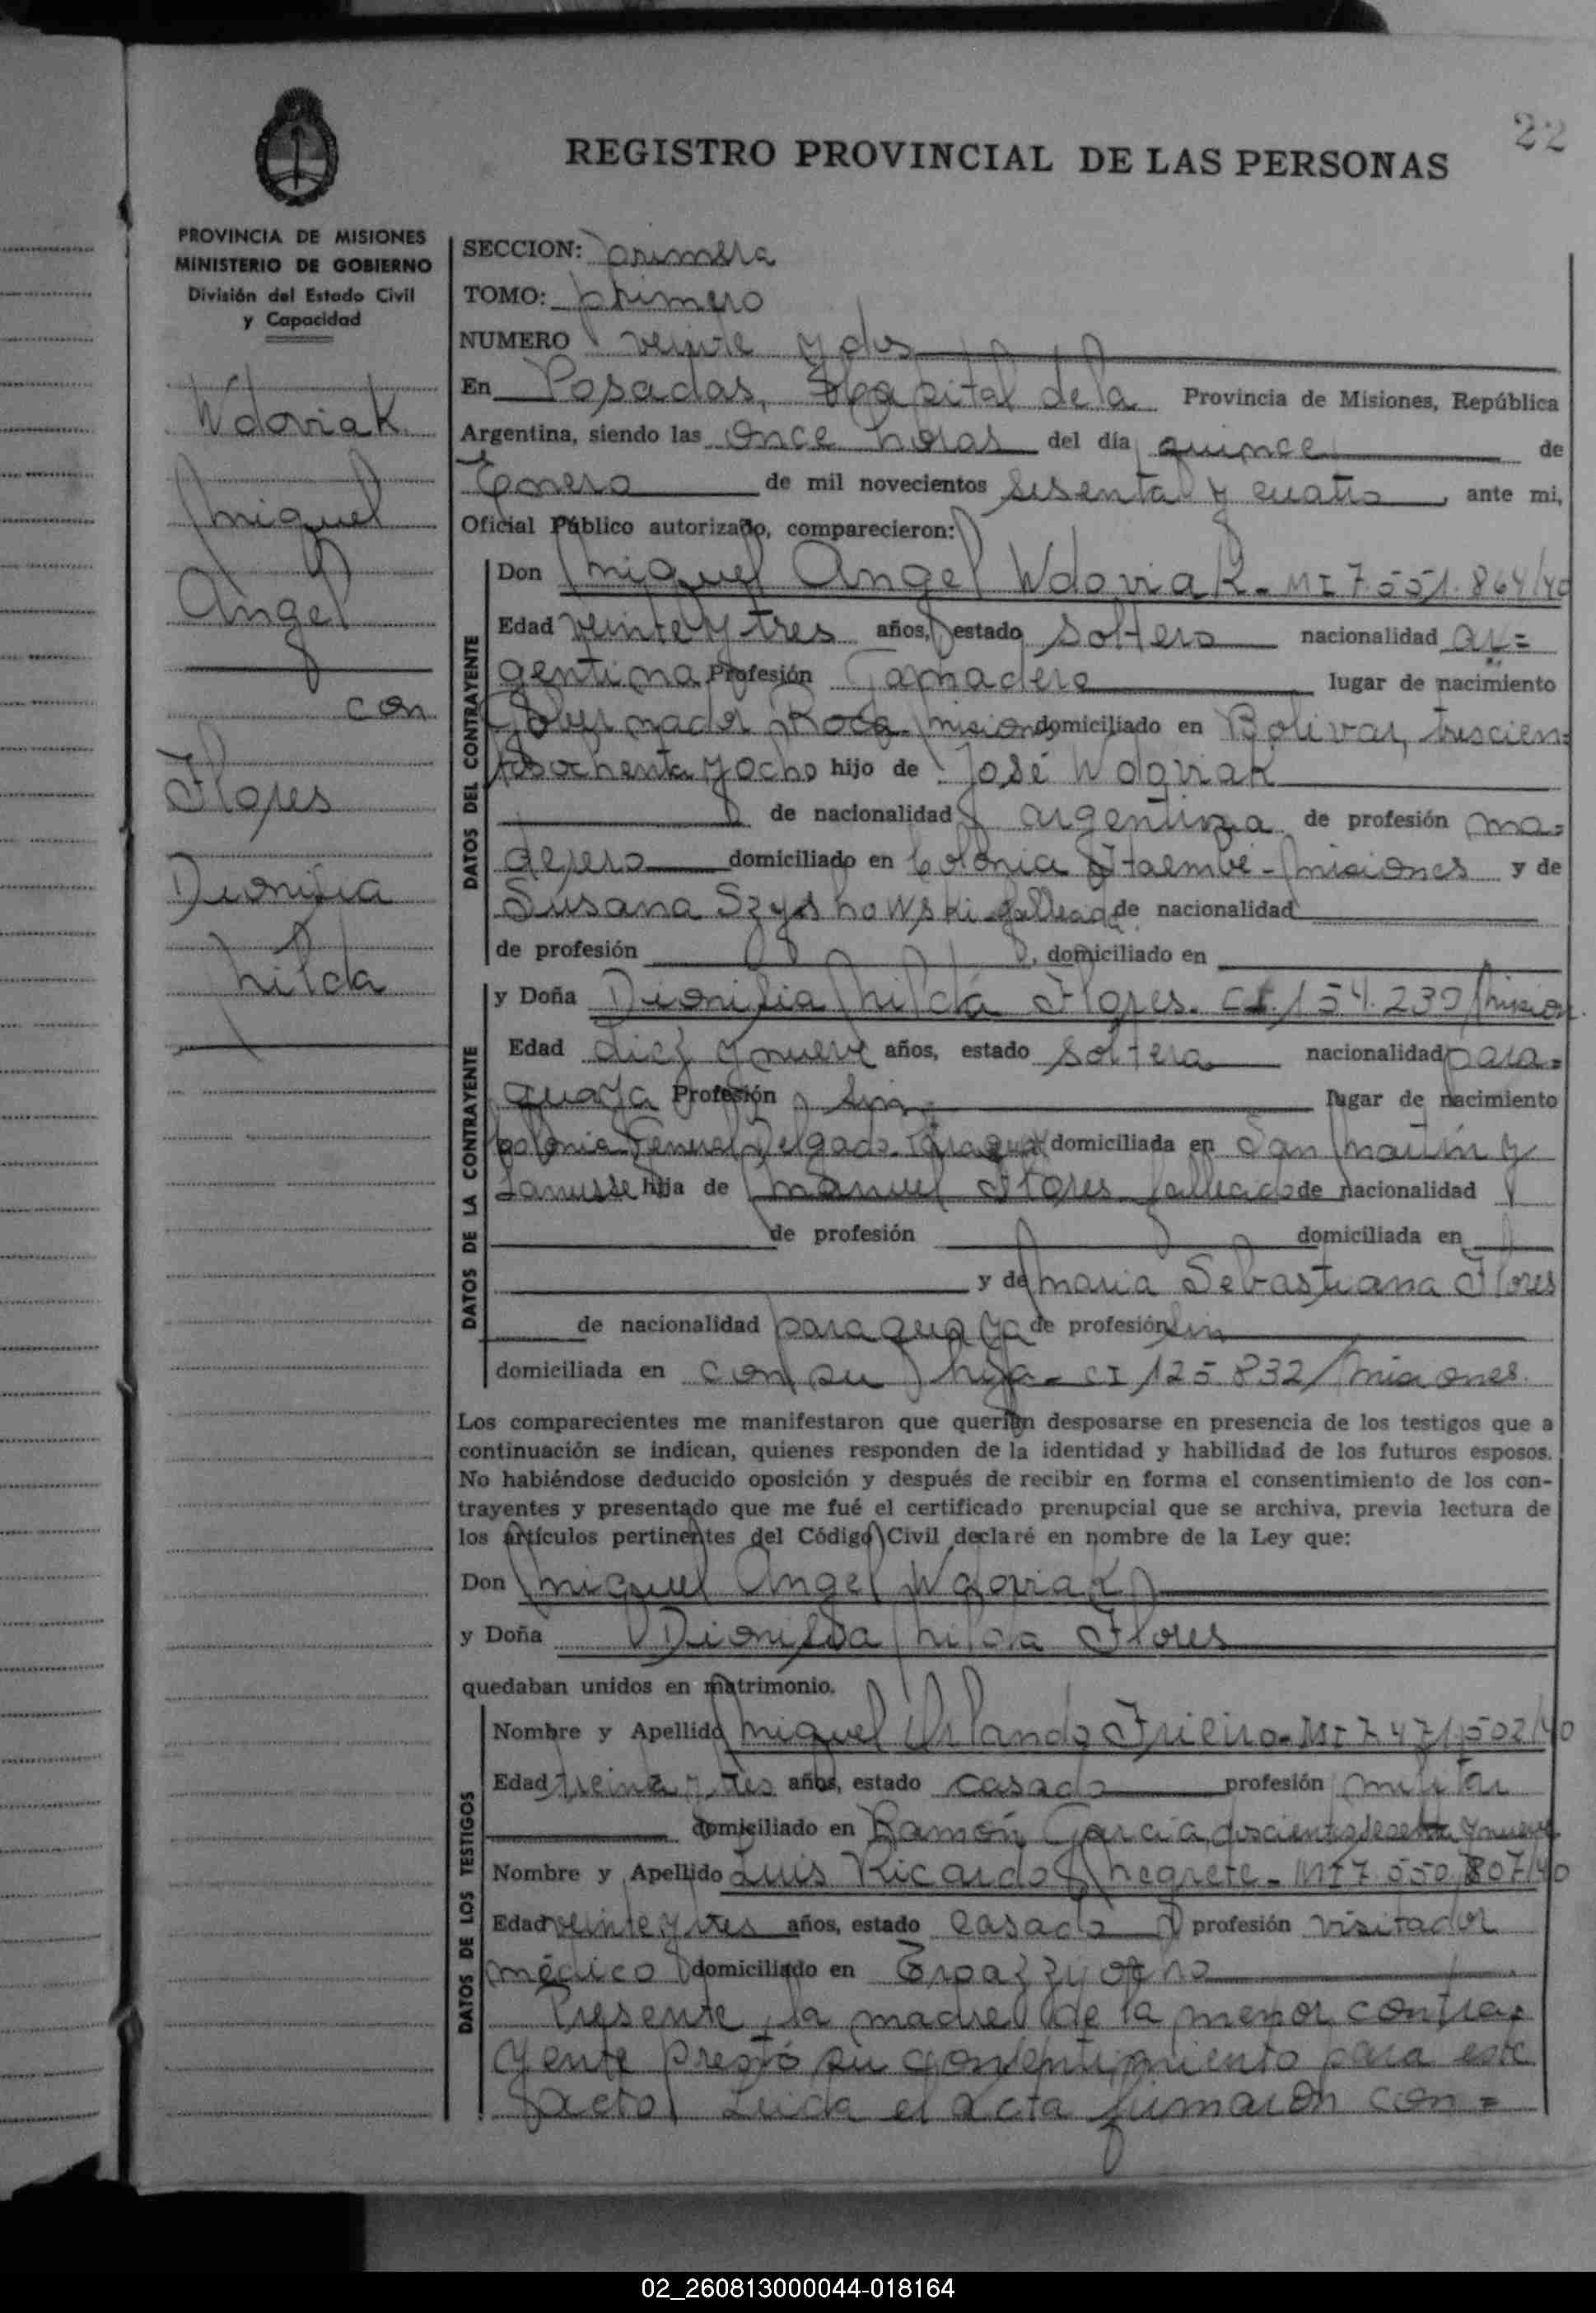 22
REGISTRO PROVINCIAL DE LAS PERSONAS
PROVINCIA DE MISIONES
MINISTERIO DE GOBIERNO
División del Estado Civil
y Capacidad
Wdoviak
Miguel
Angel
con
Flores
Dionisia
Hilda
SECCION: primera
TOMO: primero
NUMERO veinte y dos
En Posadas, Capital de la Provincia de Misiones, República
Argentina, siendo las once horas del día quince de
Enero de mil novecientos sesenta y cuatro, ante mi,
Oficial Público autorizado, comparecieron:
DATOS DEL CONTRAYENTE
Don Miguel Angel Wdoviak - MI 7.551.864/40
Edad veinte y tres años, estado soltero nacionalidad ar=
gentina Profesión lugar de nacimiento
Gobernador Roca - Misiones domiciliado en Bolivar, trescien=
tos ochenta y ocho hijo de José Wdoviak
de nacionalidad argentina de profesión ma=
derero domiciliado en Colonia Itaembé - Misiones y de
Susana Szyshowski fallecida de nacionalidad
de profesión , domiciliado en
DATOS DE LA CONTRAYENTE
y Doña Dionisia Hilda Flores. CI. 154.239/Mision.
Edad diez y nueve años, estado soltera nacionalidad para=
guaya Profesión sin lugar de nacimiento
Colonia General Delgado. Paraguay domiciliada en San Martín y
Lanusse hija de Manuel Flores fallecido de nacionalidad
de profesión domiciliada en
y de Maria Sebastiana Flores
de nacionalidad paraguaya de profesión sin
domiciliada en con su hija - CI 125832/Misiones.
Los comparecientes me manifestaron que querían desposarse en presencia de los testigos que a
continuación se indican, quienes responden de la identidad y habilidad de los futuros esposos.
No habiéndose deducido oposición y después de recibir en forma el consentimiento de los con-
trayentes y presentado que me fué el certificado prenupcial que se archiva, previa lectura de
los artículos pertinentes del Código Civil declaré en nombre de la Ley que:
Don Miguel Angel Wdoviak
y Doña Dionisia Hilda Flores
quedaban unidos en matrimonio.
DATOS DE LOS TESTIGOS
Nombre y Apellido Miguel Orlando Frieiro - MI 7471502/40
Edad treinta y tres años, estado casado profesión militar
domiciliado en Ramón Garcia, doscientos sesenta y nueve
Nombre y Apellido Luis Ricardo Negrete - MI 7 550 807/40
Edad veinte y tres años, estado casado profesión visitador
médico domiciliado en
Presente la madre de la menor contra=
yente prestó su consentimiento para este
acto. Leida el acta firmaron con=
02_260813000044-018164